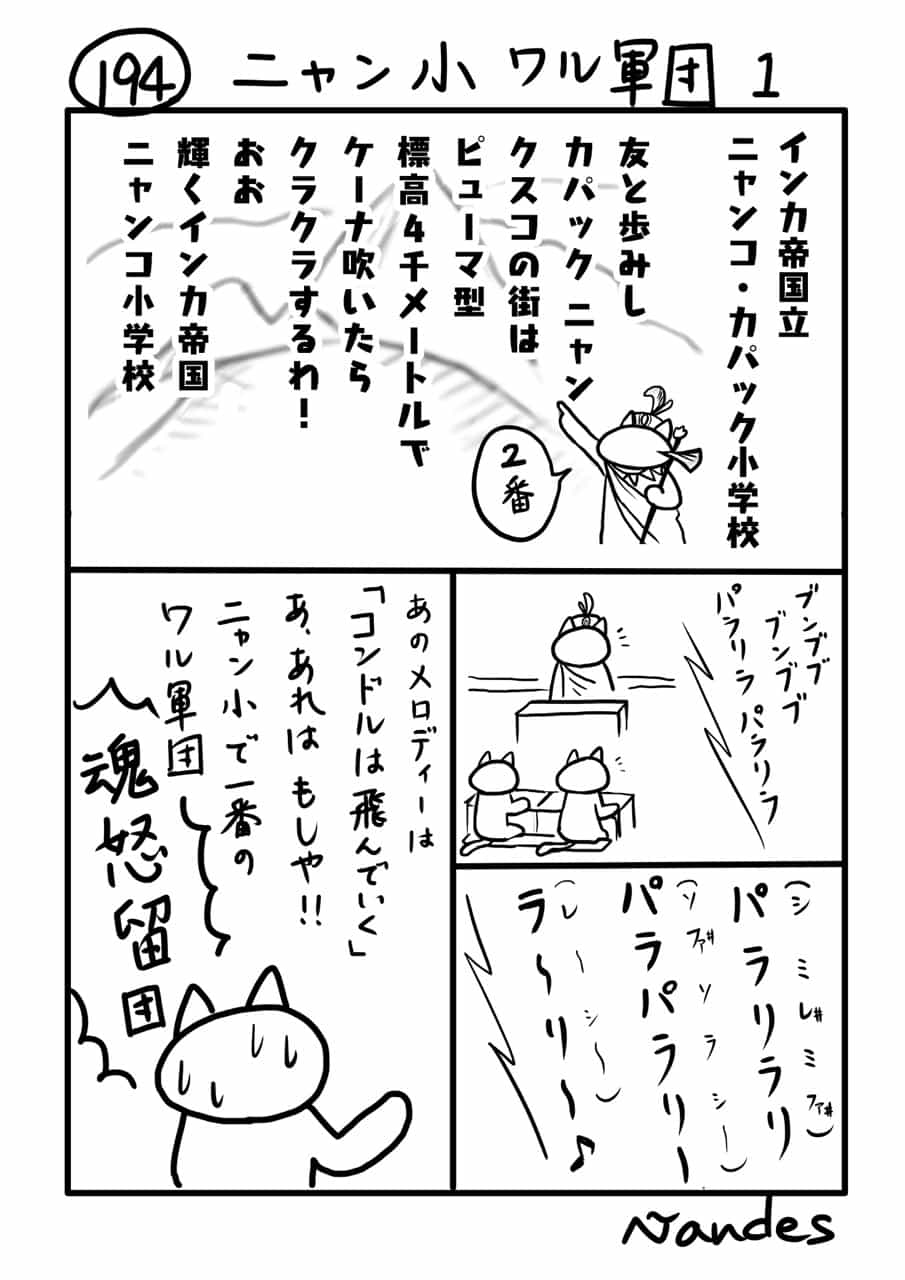 194 ニャン小 ワル軍団 1
インカ帝国立
ニャンコ・カパック小学校
友と歩みし
カパック ニャン
クスコの街は
ピューマ型
標高4千メートルで
ケーナ吹いたら
クラクラするわ!
おお
輝くインカ帝国
ニャンコ小学校
2番
ブンブブ
ブンブブ
パラリラ パラリラ
(シ ミ レ# ミ ファ#)
パラリラリ
(ソ ファ# ソ ラ シー)
パラパラリー
(レ〜 シ〜)
ラ〜リ〜♪
あのメロディーは
「コンドルは飛んでいく」
あ、あれは もしや!!
ニャン小で一番の
ワル軍団
魂怒留団
Nandes